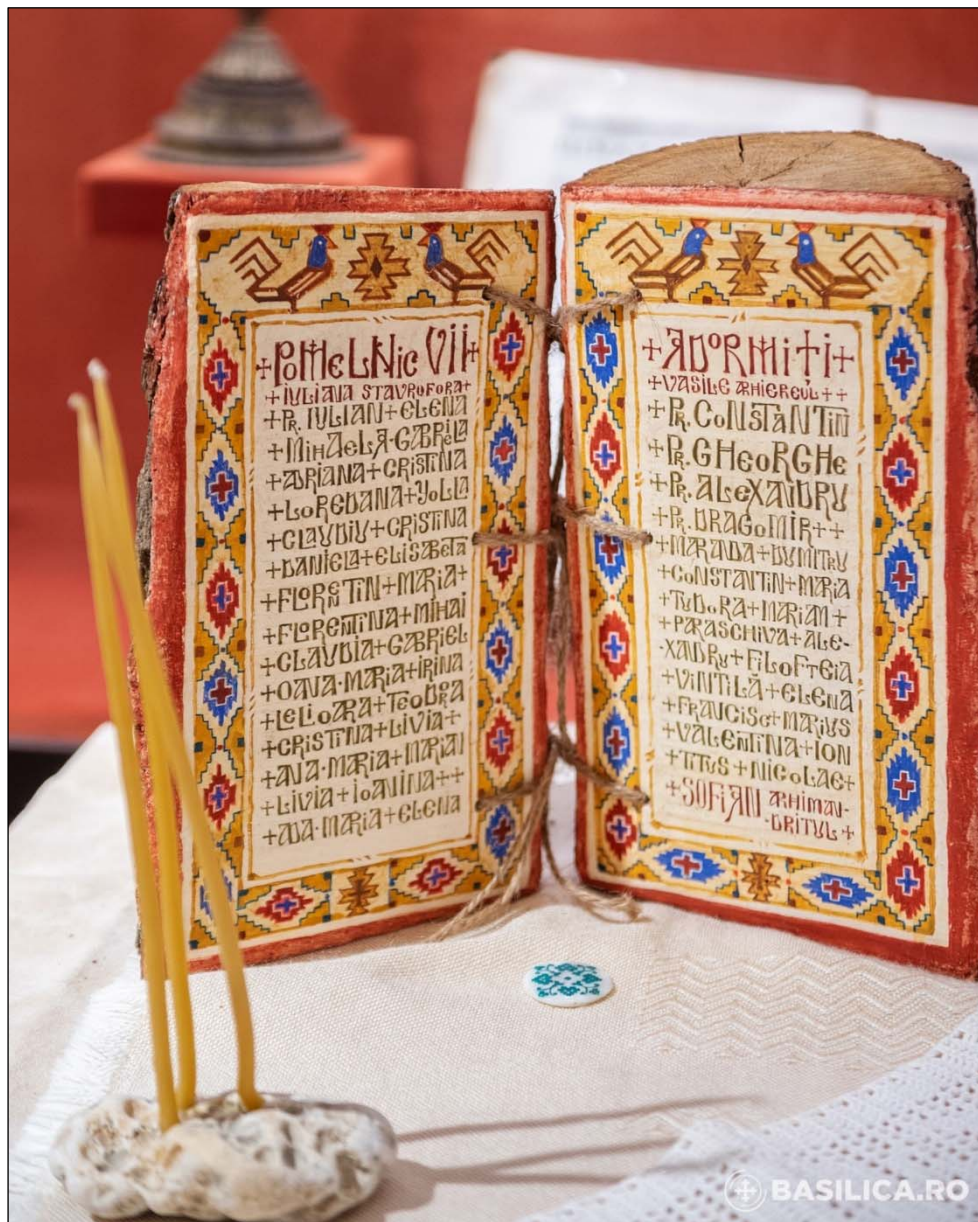 +POMELNIC VII+
+IULIANA STAVROFORA+
+PR. IULIAN+ELENA
+MIHAELA-GABRIELA
+ADRIANA+CRISTINA
+LOREDANA+YOLLA
+CLAUDIU+CRISTINA
+DANIELA+ELISABETA
+FLORENTIN+MARIA+
+FLORENTINA+MIHAI
+CLAUDIA+GABRIEL
+OANA-MARIA+IRINA
+LELIOARA+TEODORA
+CRISTINA+LIVIA+
+ANA-MARIA+MARIAN
+LIVIA+IOANINA++
+ADA-MARIA+ELENA
+ADORMIȚI+
+VASILE ARHIEREUL++
+PR. CONSTANTIN
+PR. GHEORGHE
+PR. ALEXANDRU
+PR. DRAGOMIR++
+MARANDA+DUMITRU
+CONSTANTIN+MARIA
+TUDORA+MARIAM+
+PARASCHIVA+ALE-
-XANDRU+FILOFTEIA
+VINTILĂ+ELENA
+FRANCISC+MARIUS
+VALENTINA+ION
+TITUS+NICOLAE+
+SOFIAN ARHIMAN-
-DRITUL+
BASILICA.RO